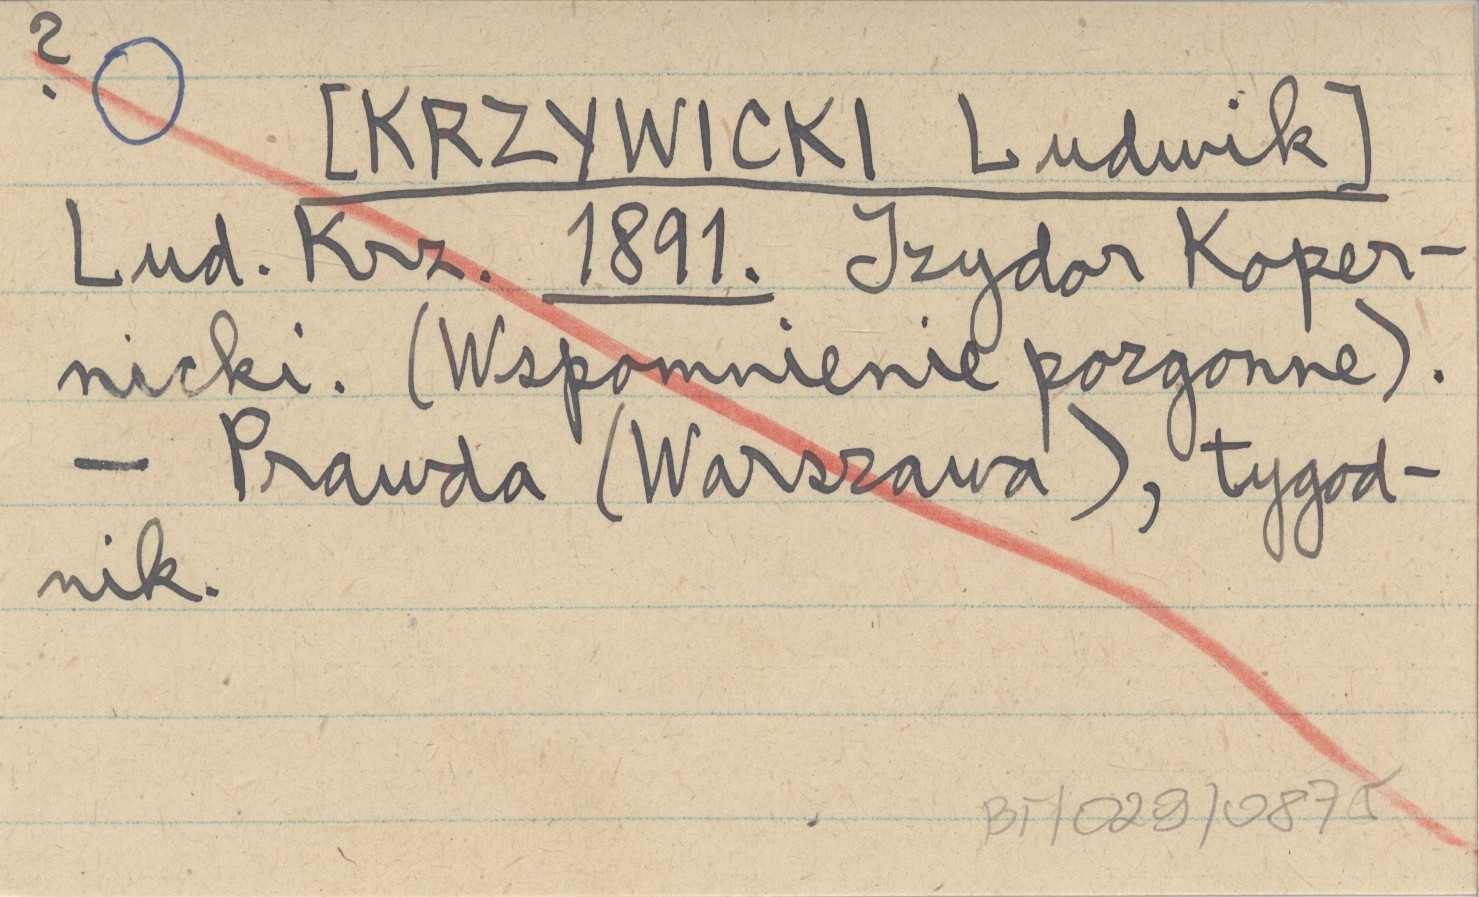 ?
[KRZYWICKI Ludwik]
Lud. Krz. 1891. Izydor Koper-
nicki. (Wspomnienie pozgonne).
— Prawda (Warszawa), tygod-
nik.
BT/029/0875